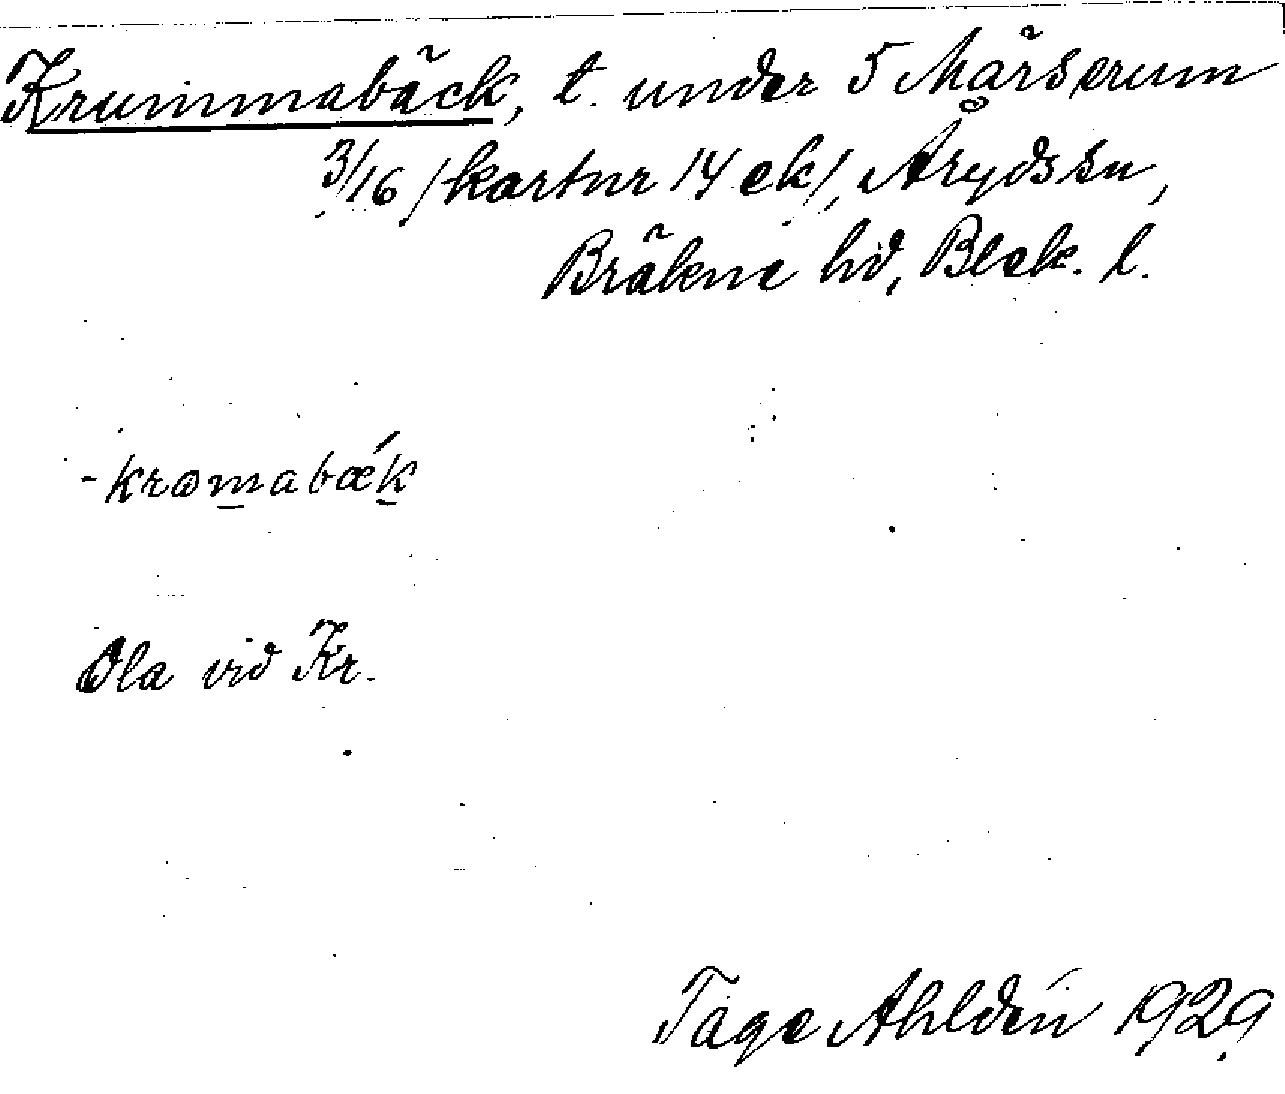 Krummabäck, t. under 5 Märserum
3/16 /kartnr 14 ek/, Åryds sn,
Bräkne hd, Blek. l.
-kromabæ´k
Ola vid Kr.
Tage Ahldén 1929